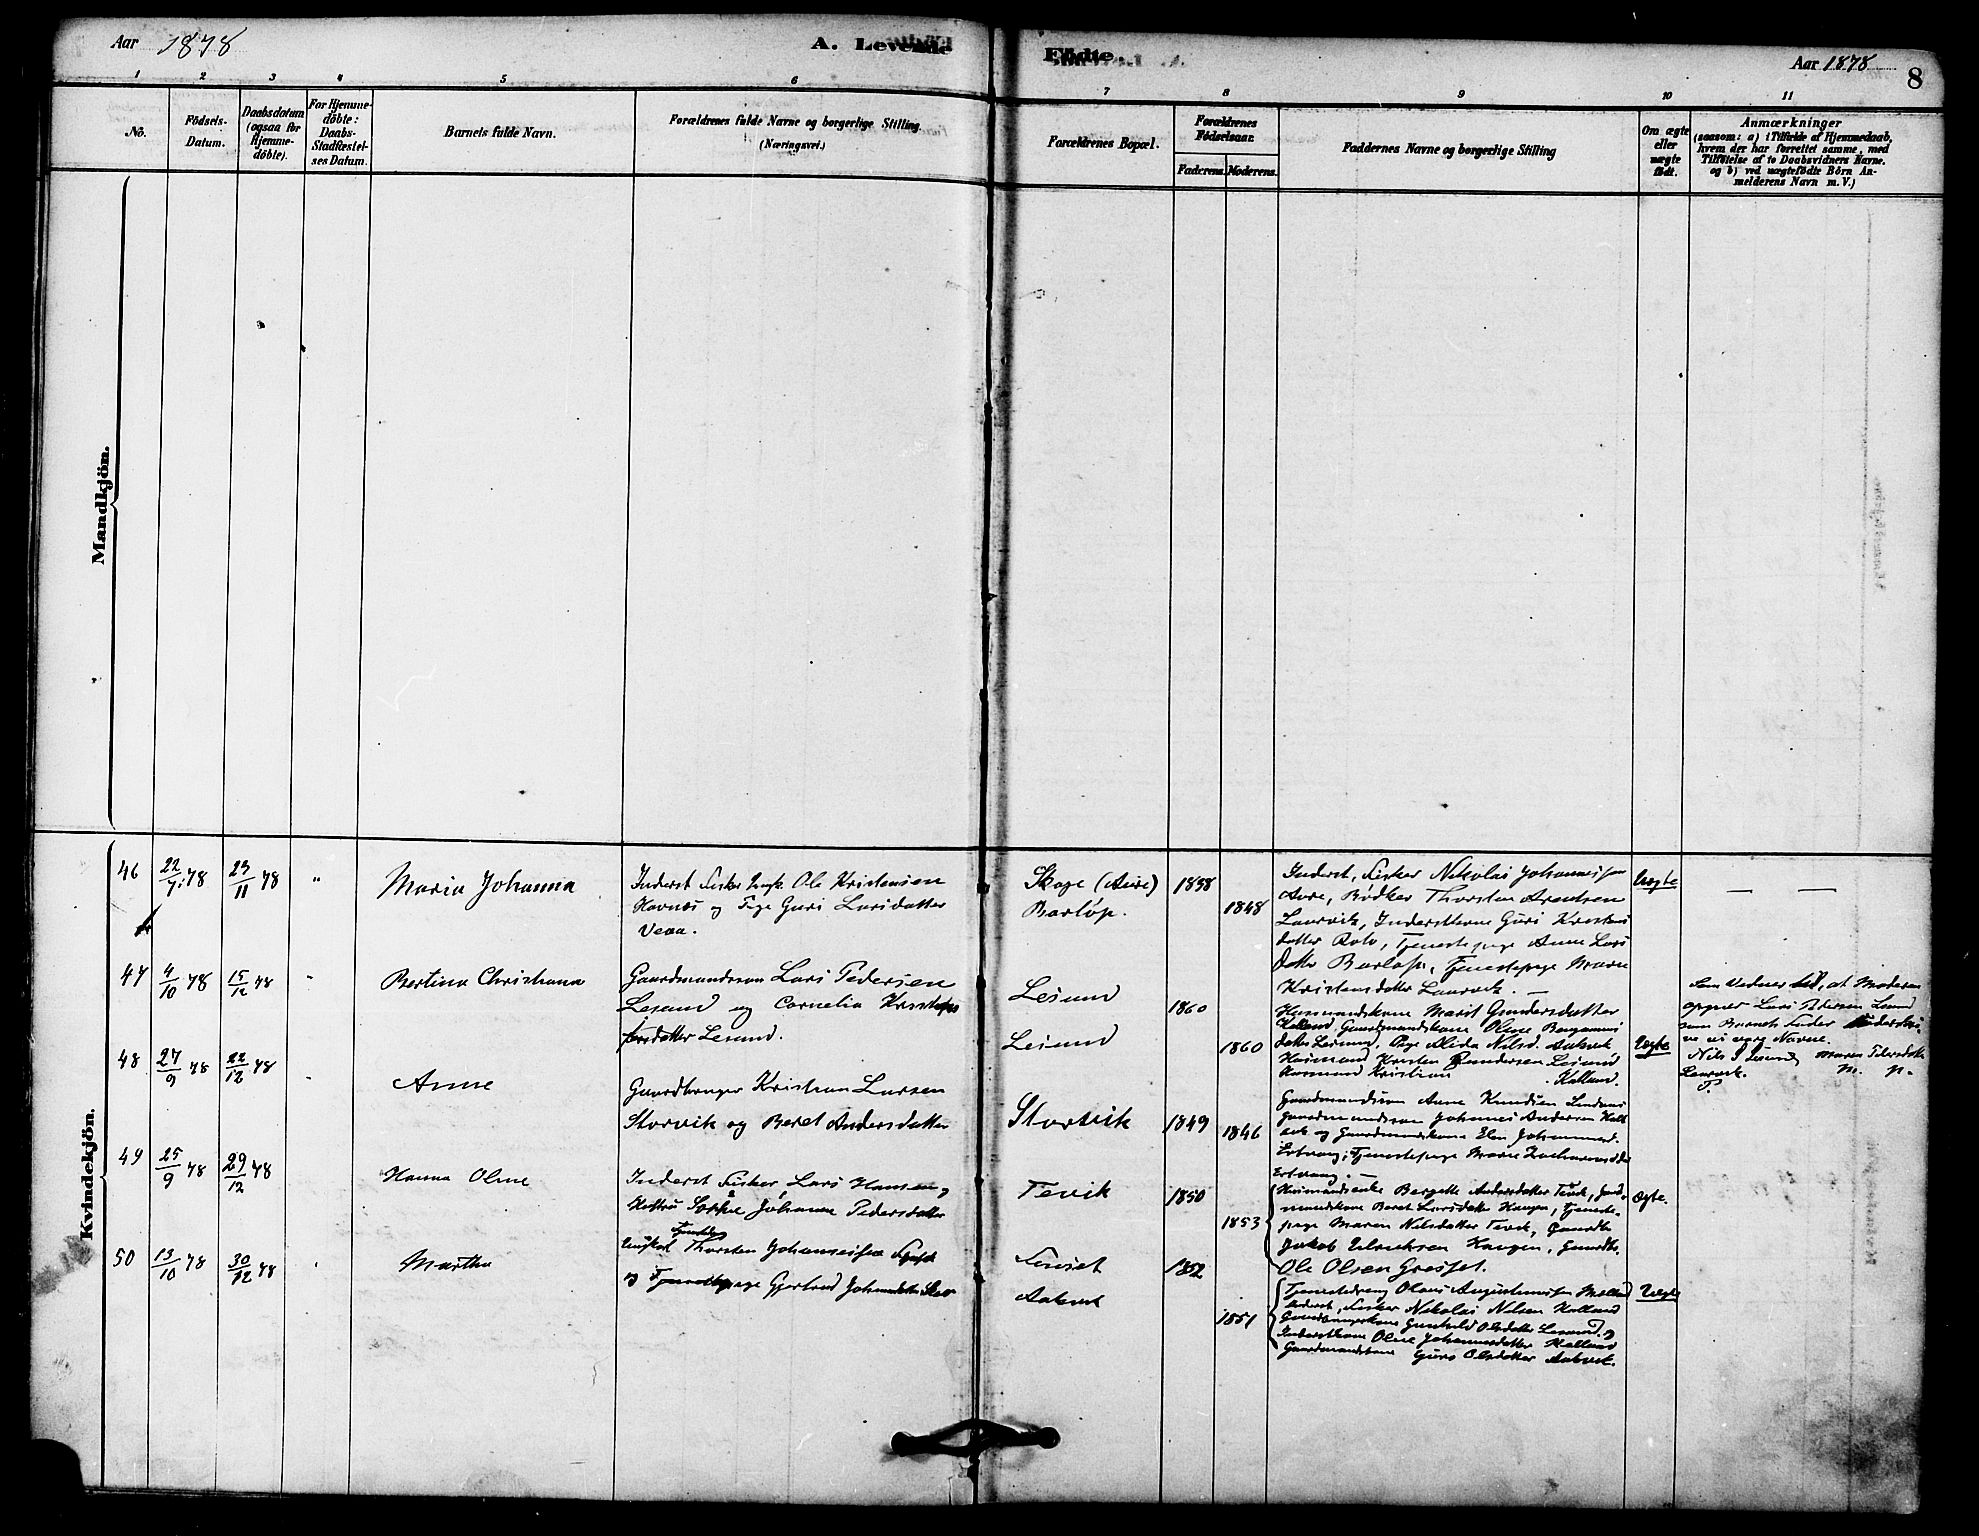 Aar 1878
A. Levende
Födte.
Aar 1878
8
1 2 3 4 5 6 7 8 9 10 11
No.
Födsels-
Datum.
Daabsdatum
(ogsaa for
Hjemme-
döbte).
For Hjemme-
döbte:
Daabs-
Stadfæstel-
ses Datum.
Barnets fulde Navn.
Forældrenes fulde Navne og borgerlige Stilling.
(Næringsvei.)
Forældrenes Bopæl.
Forældrenes
Födselsaar.
Faderens. Moderens.
Faddernes Navne og borgerlige Stilling
Om ægte
eller
uægte
födt.
Anmærkninger
(saasom: a) i Tilfælde af Hjemmedaab,
hvem der har forrettet samme, med
Tilföielse af to Daabsvidners Navne.
og b) ved uægtefödte Börn An-
melderens Navn m. V.)
Mandkjön.
Kvindekjön.
46
22/7 78
23/11 78
"
Maria Johanna
Inderst Fisker Ungk. Ole Kristensen
Havnes og Pige Guri Larsdatter
Veaa.
Skage (Aure)
Barlöp.
1858
1848
Inderst, Fisker Nikolai Johannessen
Aure, Bödker Thorsten Arentsen
Laurvik, Inderstkone Guri Kristens
datter Rolv, Tjenestepige Anne Lars
datter Barlöp, Tjenestepige Marie
Kristensdatter Laurvik. —
Uægte
— —
47
4/10 78
15/12 78
"
Bertina Christiana
Gaardmandssøn Lars Pedersen
Lesund og Cornelia Kristof
fersdatter Lesund.
Lesund
Lesund
1860
1860
Husmandskone Marit Gundersdatter
Kalland, Gaardmandskone Oline Benjamins
datter Lesund, Pige Alida Nilsd. Aakvik
Husmand Kristen Lesund
Husmand Kristian Kalland.
Uægte
Som Vidner, at Moderen
opgiver Lars Pedersen Lesund
som Barnets Fader
Navne.
Nils Lesund Maren Pedersdatter
Laurvik. m. p.
48
27/9 78
22/12 78
Anne
Gaardbruger Kristian Larsen
Storvik og Beret Andersdatter
Storvik
1849
1846
Gaardmandssøn Arne Knudsen
Gaardmandssøn Johannes Andersen
og Gaardmandskone Elen Johannesd.
Ertvaag, Tjenestepige Marie Zachariasd
Ertvaag. —
49
25/9 78
29/12 78
Hanna Oline
Inderst Fisker Lars Hansen
Hustru Johanna Pedersdatter
Tevik
1850
1853
Husmandsenke Bergette Andersdatter Tevik, Gaard-
mandskone Beret Larsdatter Haugen, Tjeneste-
pige Maren Nilsdatter Tevik, Gaardbr.
Jakob Ulrichsen Haugen, Gaardbr.
Ole Olsen Gresset.
Ægte.
50
13/10 78
30/12 78
Martha
Ungkarl Thorsten Johannessen
og Tjenestepige Gjertrud Johannesdatter
Aakvik
1852
1851
Tjenestedreng Olaus Augustinussen
Inderst, Fisker Nikolai Nilsen Kalland
Gaardbrugerkone Gunhild Olsdatter Lesund, og
Inderstkone Oline Johannesdatter Kalland
Gaardmandskone Guro Olsdatter Aakvik.
Uægte